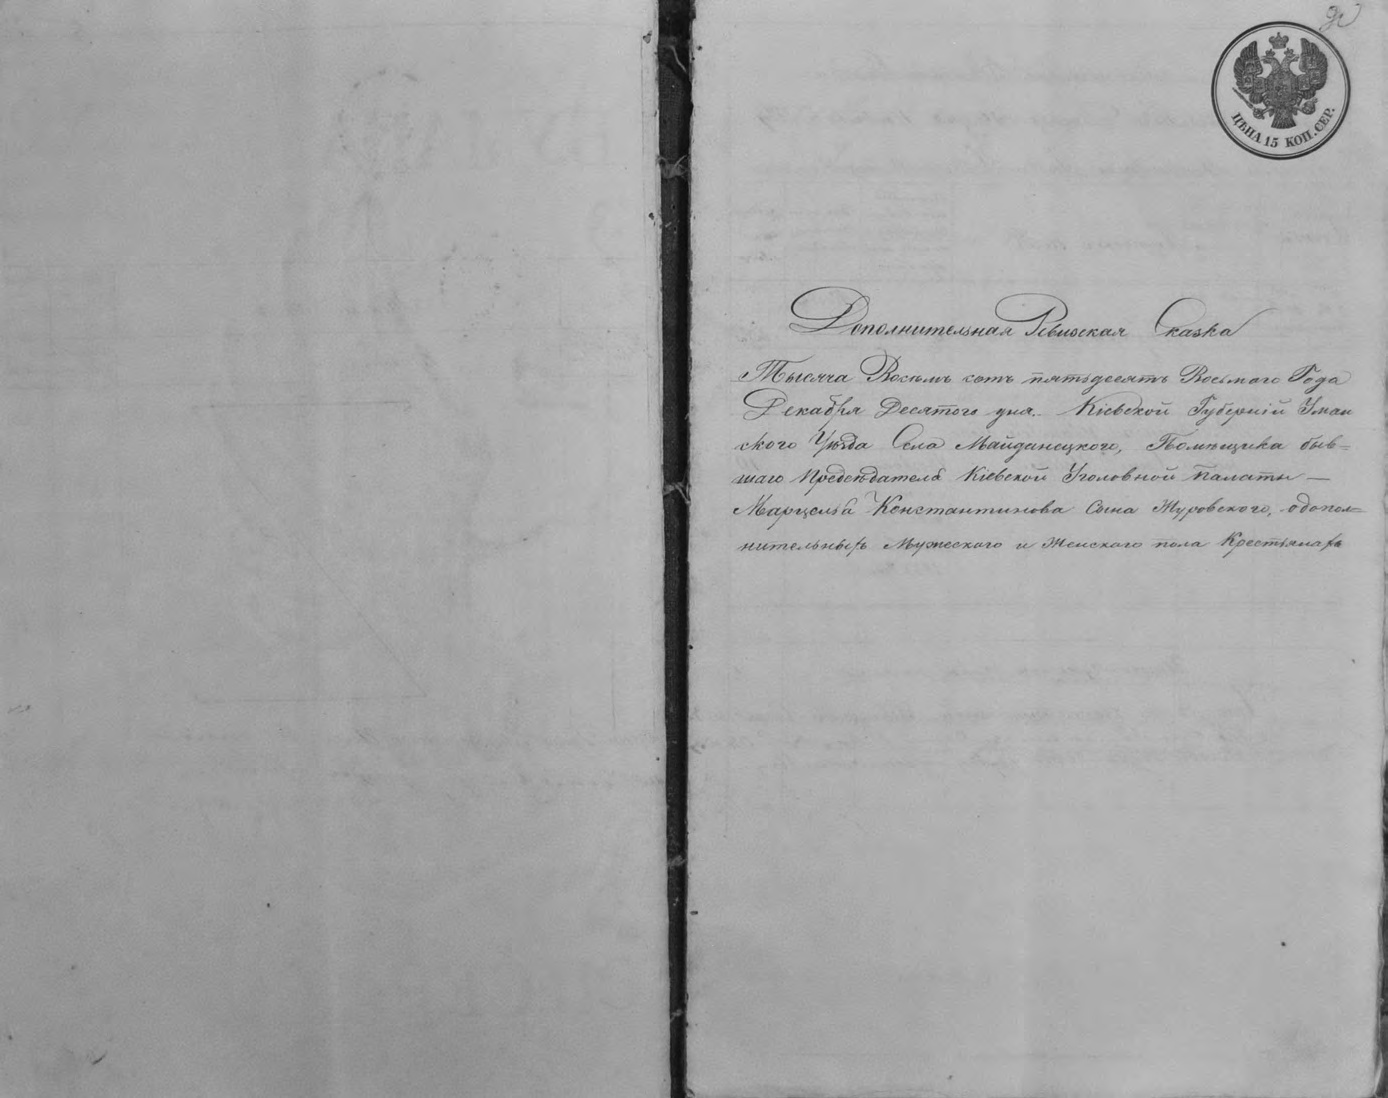 ЦѢНА 15 КОП. СЕР.
Дополнительная Ревизская Сказка
Тысяча Восемь сотъ пятьдесятъ Восьмаго Года
Декабря Десятого дня. Кіевской Губерніи Уман
ского Уѣзда Села Майданецкого, Помѣщика быв=
шаго Предсѣдателя Кіевской Уголовной Палаты —
Марцелья Константинова Сына Журовского, о допол=
нительныхъ Мужеского и Женского пола Крестьянахъ